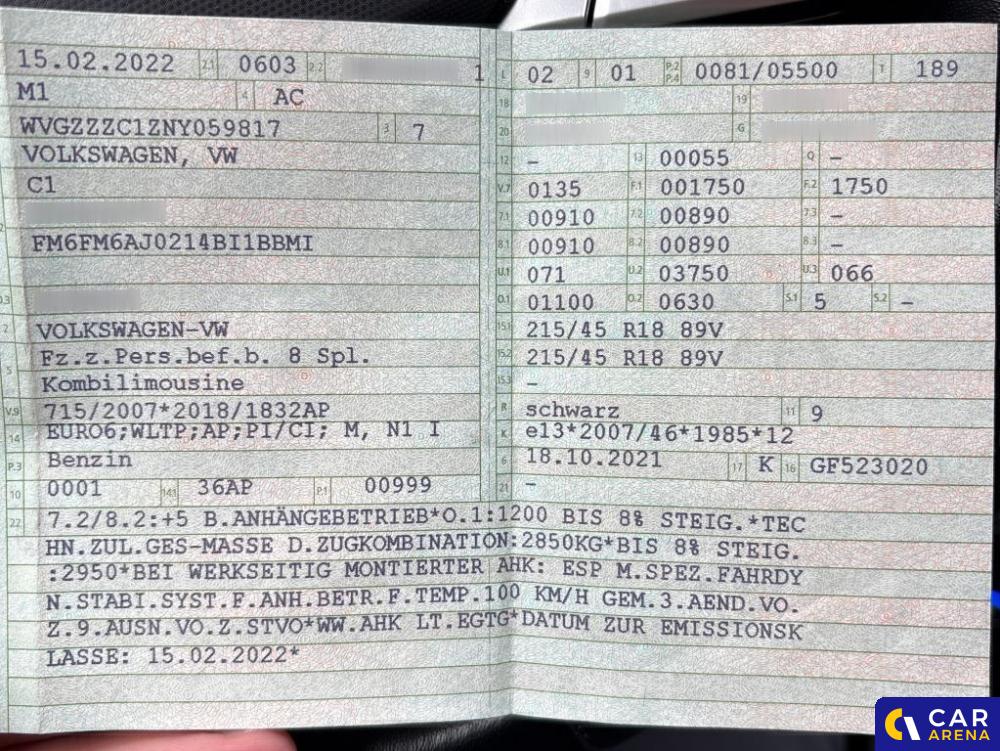 15.02.2022 2.1 0603 2.2 1
M1 4 AC
WVGZZZC1ZNY059817 3 7
VOLKSWAGEN, VW
C1
FM6FM6AJ0214BI1BBMI
2 VOLKSWAGEN-VW
5 Fz.z.Pers.bef.b. 8 Spl.
Kombilimousine
V.9 715/2007*2018/1832AP
14 EURO6;WLTP;AP;PI/CI; M, N1 I
P.3 Benzin
10 0001 14.1 36AP P.1 00999
L 02 9 01 P.2 P.4 0081/05500 T 189
18 19
20 G
12 – 13 00055 Q –
V.7 0135 F.1 001750 F.2 1750
7.1 00910 7.2 00890 7.3 –
8.1 00910 8.2 00890 8.3 –
U.1 071 U.2 03750 U.3 066
O.1 01100 O.2 0630 S.1 5 S.2 –
15.1 215/45 R18 89V
15.2 215/45 R18 89V
15.3 –
R schwarz 11 9
K e13*2007/46*1985*12
6 18.10.2021 17 K 16 GF523020
21 –
22 7.2/8.2:+5 B.ANHÄNGEBETRIEB*O.1:1200 BIS 8% STEIG.*TEC
HN.ZUL.GES-MASSE D.ZUGKOMBINATION:2850KG*BIS 8% STEIG.
:2950*BEI WERKSEITIG MONTIERTER AHK: ESP M.SPEZ.FAHRDY
N.STABI.SYST.F.ANH.BETR.F.TEMP.100 KM/H GEM.3.AEND.VO.
Z.9.AUSN.VO.Z.STVO*WW.AHK LT.EGTG*DATUM ZUR EMISSIONSK
LASSE: 15.02.2022*
CAR
ARENA